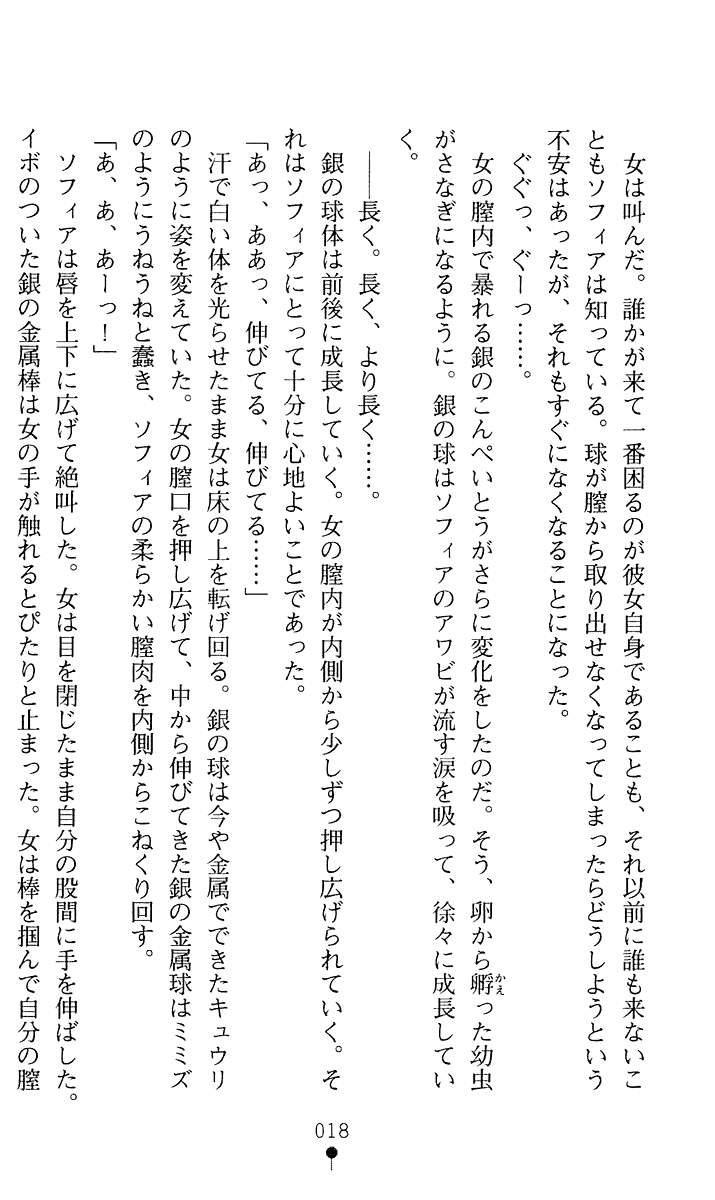 女は叫んだ。誰かが来て一番困るのが彼女自身であることも、それ以前に誰も来ないこ
ともソフィアは知っている。球が膣から取り出せなくなってしまったらどうしようという
不安はあったが、それもすぐになくなることになった。
　ぐぐっ、ぐーっ……。
　女の膣内で暴れる銀のこんぺいとうがさらに変化をしたのだ。そう、卵から孵（かえ）った幼虫
がさなぎになるように。銀の球はソフィアのアワビが流す涙を吸って、徐々に成長してい
く。
　――長く。長く、より長く……。
　銀の球体は前後に成長していく。女の膣内が内側から少しずつ押し広げられていく。そ
れはソフィアにとって十分に心地よいことであった。
「あっ、ああっ、伸びてる、伸びてる……」
　汗で白い体を光らせたまま女は床の上を転げ回る。銀の球は今や金属でできたキュウリ
のように姿を変えていた。女の膣口を押し広げて、中から伸びてきた銀の金属球はミミズ
のようにうねうねと蠢き、ソフィアの柔らかい膣肉を内側からこねくり回す。
「あ、あ、あーっ！」
　ソフィアは唇を上下に広げて絶叫した。女は目を閉じたまま自分の股間に手を伸ばした。
イボのついた銀の金属棒は女の手が触れるとぴたりと止まった。女は棒を掴んで自分の膣
018